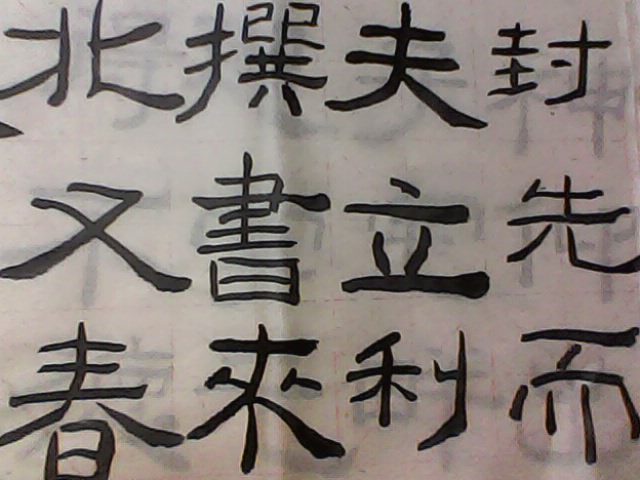 封先而
夫立利
撰書來
北又春